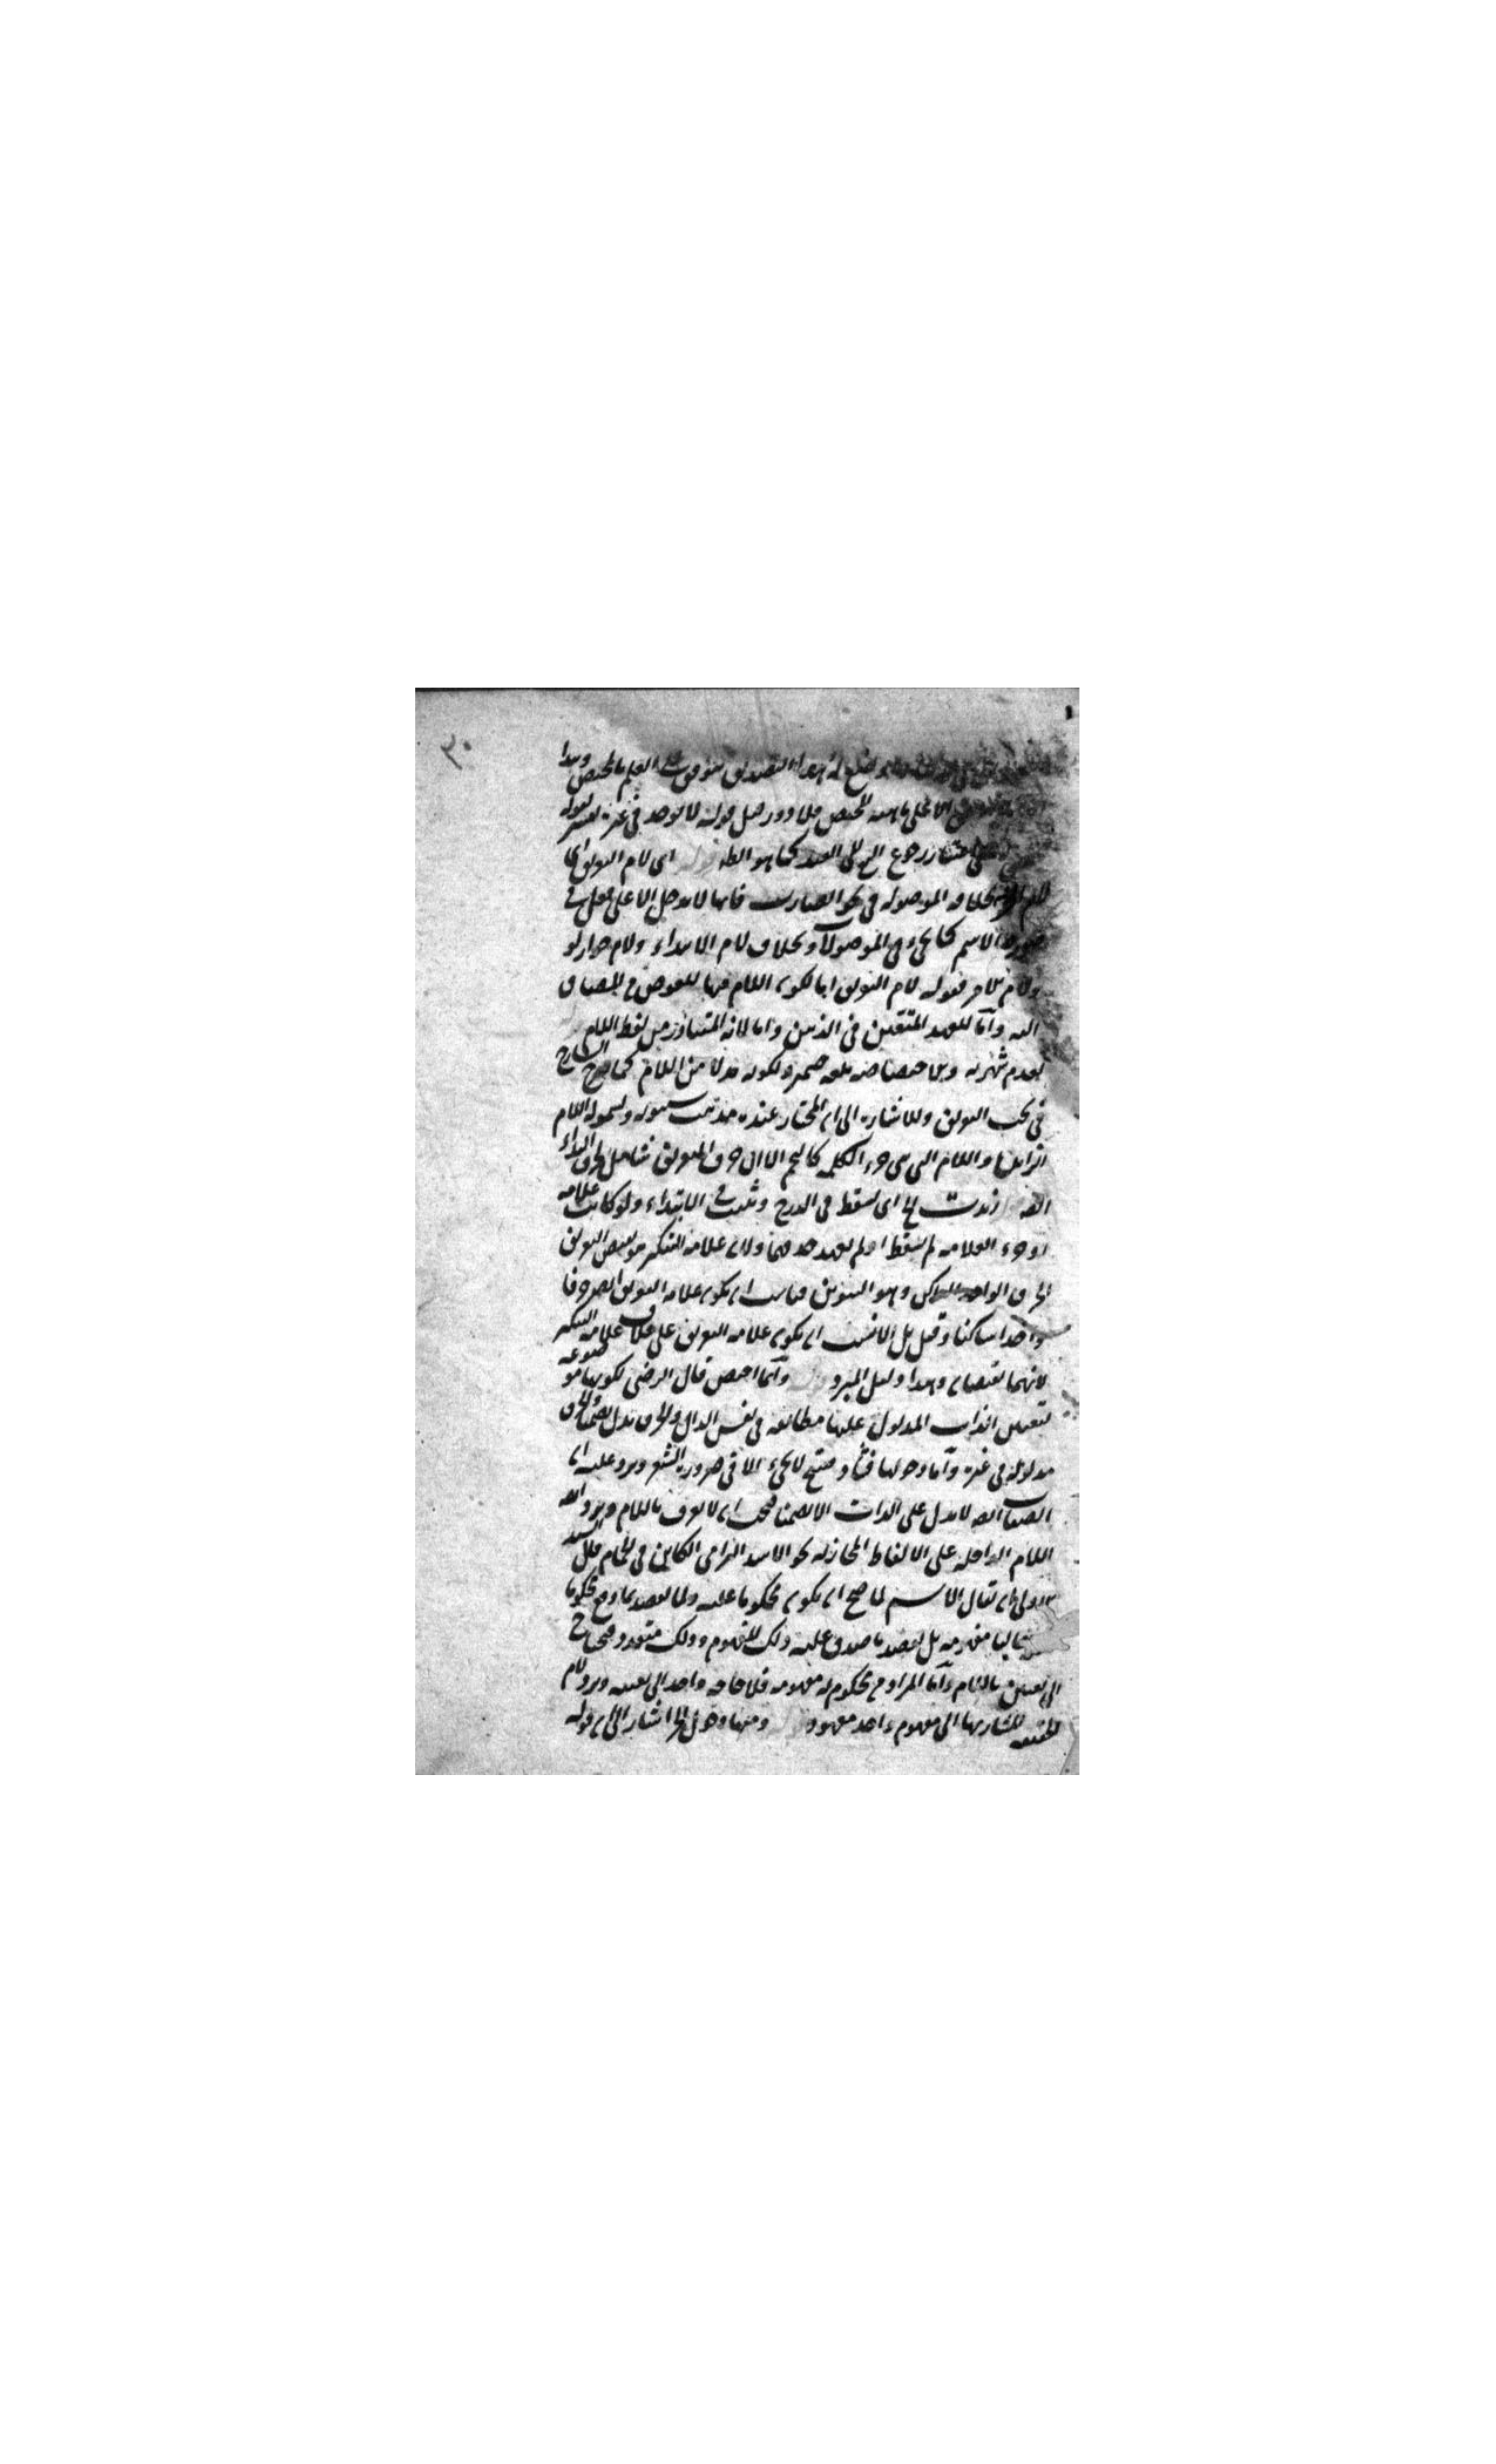 ٣٠
التصديق يتوقف على العلم بالمختص وهذا
الا على ماهية المختص فلا دور قوله لا يوجد في غيره تفسير لقوله
رجوع الى القيد كما هو الظ اى لام التعريف اى
بخلاف الموصولة في نحو الضارب فانها لا تدخل الا على فعل في
صورة الاسم كما يجئ في الموصولات وبخلاف لام الابتداء ولام جواب لو
ولام الامر فقوله لام التعريف اما لكون اللام فيها للعوض عن المضاف
اليه واما للعهد المتعين في الذهن واما لانه المتبادر من لفظ اللام
لعدم شهرته وبل اختصاصه بلغة حمير ولكونه بدلا من اللام كما صرح الشارح
في بحث التعريف وللاشارة الى ان المختار عنده مذهب سيبويه ولشموله اللام
الزائدة واللام التي هي جزء الكلمة كالنجم الا ان حرف التعريف شامل لحرف النداء
ايضا زيدت الخ اى يسقط في الدرج ويثبت في الابتداء ولو كانت علامة
او جزء العلامة لم يسقط اذ لم يعهد حذفها ولان علامة التنكير هو نقيض التعريف
الحرف الواحد الساكن وهو التنوين فناسب ان يكون علامة التعريف ايضا حرفا
واحدا ساكنا وقيل بل الانسب ان يكون علامة التعريف على خلاف علامة التنكير
لانهما نقيضان وهذا دليل المبرد وانما اختص قال الرضى لكونها موضوعة
لتعيين الذات المدلول عليها مطابقة في نفس الدال والحرف تدل
مدلوله في غيره واما دخولها في لا يجئ الا في ضرورة الشعر ويرد عليه ان
الصفات ايضا لا تدل على الذات الا تضمنا فيجب ان لا تعرف باللام ويرد ايضا
اللام الداخلة على الالفاظ المجازية نحو الاسد الرامى الكائن في الحمام
الاولى ان يقال الاسم لما صح ان يكون محكوما عليه ولا يقصد بما وقع محكوما
غالبا مفهومه بل يقصد ما صدق عليه ذلك المفهوم وذلك متعدد فيحتاج
الى تعيين باللام واما المراد من محكوم به مفهومه فلا حاجة الى تعيينه ويرد لام
الحقيقة المشار بها الى مفهوم واحد معهود ومنها دخول الجر اشار الى ان قوله